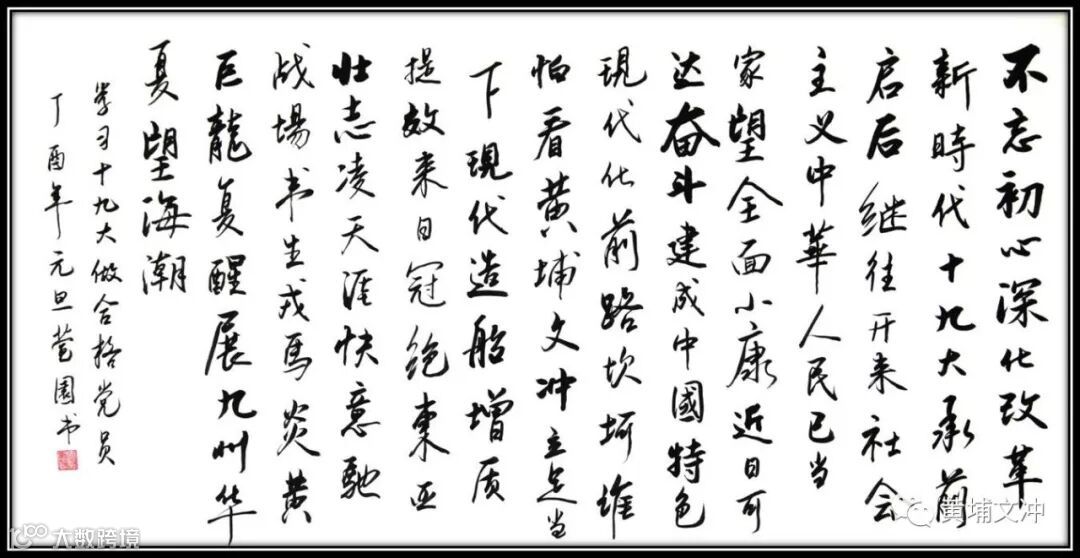 不忘初心深化改革
新時代十九大承前
启后继往开来社会
主义中華人民已当
家望全面小康近日可
达奋斗建成中國特色
現代化前路坎坷谁
怕看黄埔文冲立足当
下現代造船增质
提效来日冠绝東亚
壮志凌天涯快意馳
战場书生戎馬炎黄
巨龍复醒展九州华
夏望海潮
学习十九大做合格党员
丁酉年元旦 園书
黄埔文冲
大数跨境